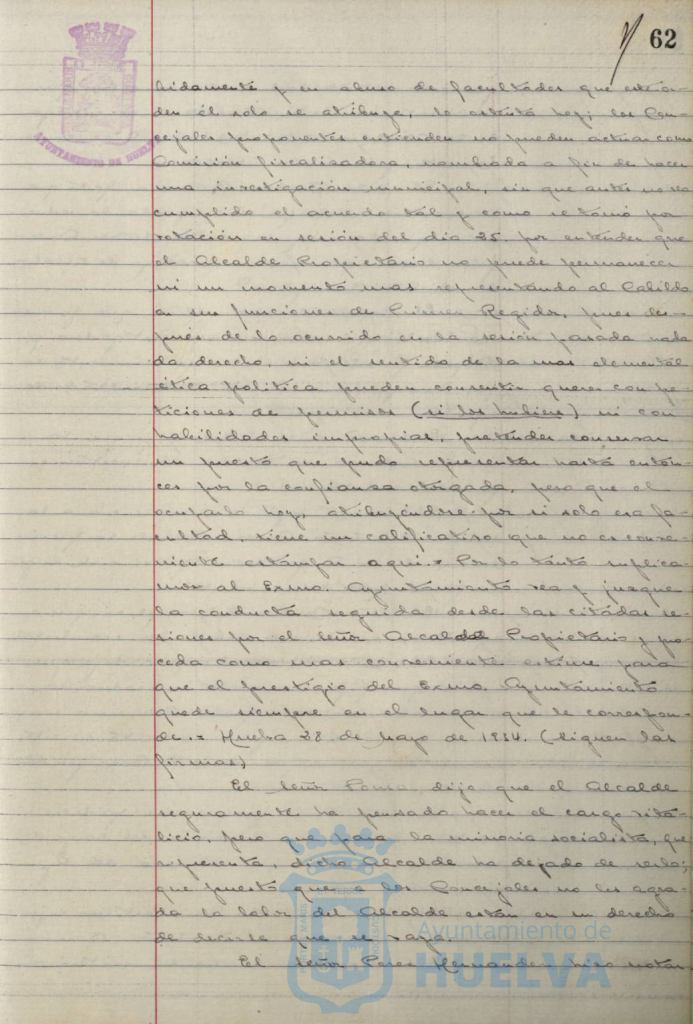 62
AYUNTAMIENTO DE HUELVA
bidamente y en abuso de facultades que
él solo se atribuye, lo ostenta hoy; los Con-
cejales proponentes entienden no pueden actuar como
Comisión fiscalizadora, nombrada a fin de hacer
una investigación municipal, sin que antes no sea
cumplido el acuerdo tal y como se tomó por
votación en sesión del dia 25. por entender que
el Alcalde Propietario no puede permanecer
ni un momento mas representando al Cabildo
en sus funciones de Primer Regidor, pues des-
pués de lo ocurrido en la sesión pasada nada
da derecho, ni el sentido de la mas elemental
ética política pueden consentir querer con pe-
ticiones de permisos (si los hubiere) ni con
habilidades impropias, pretender conservar
un puesto que pudo representar hasta enton-
ces por la confianza otorgada, pero que el
ocuparlo hoy, atribuyéndose por si solo esa fa-
cultad, tiene un calificativo que no es conve-
niente estampar aqui.= Por lo tanto suplica-
mos al Exmo. Ayuntamiento vea y juzgue
la conducta seguida desde las citadas se-
siones por el señor Alcalde Propietario y pro-
ceda como mas conveniente estime para
que el prestigio del Exmo. Ayuntamiento
quede siempre en el lugar que le correspon-
de.= Huelva 28 de Mayo de 1934. (Siguen las
firmas)
El señor Ponce dijo que el Alcalde
seguramente ha pensado hacer el cargo vita-
licio, pero que para la minoria socialista, que
representa, dicho Alcalde ha dejado de serlo;
que puesto que a los Concejales no les agra-
da la labor del Alcalde están en su derecho
de decirle que se vaya.
El señor Perez Hernandez hizo notar
Ayuntamiento de
HUELVA